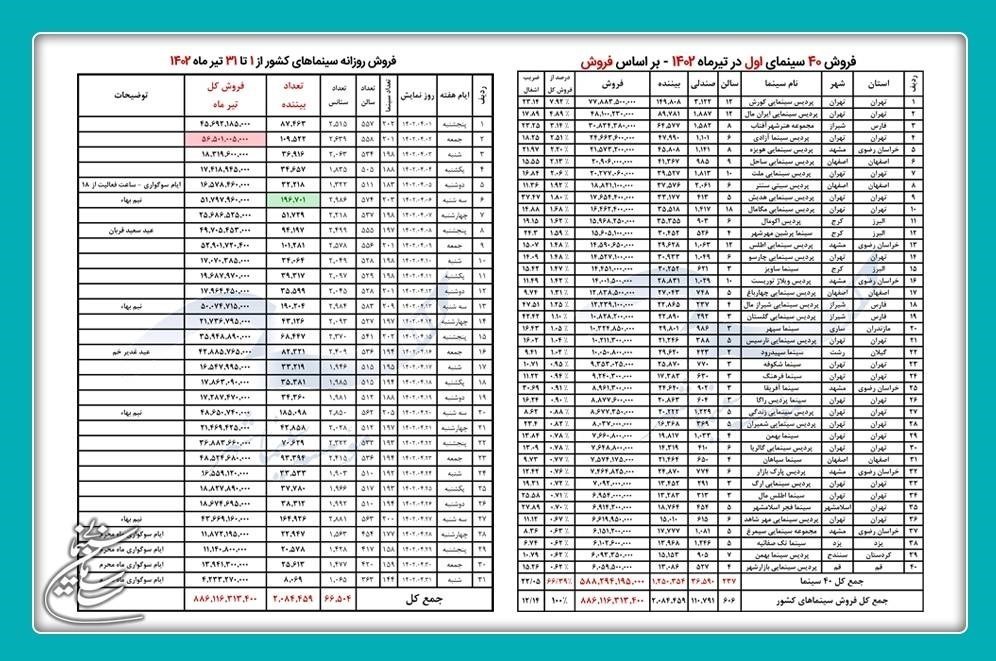 فروش ۴۰ سینمای اول در تیرماه ۱۴۰۲ - بر اساس فروش
ردیف استان شهر نام سینما سالن صندلی بیننده فروش درصد از فروش کل ضریب اشغال
۱ تهران تهران پردیس سینمایی کورش ۱۲ ۳,۱۲۲ ۱۴۹,۸۰۸ ۷۷,۸۸۳,۵۰۰,۰۰۰ ۷.۹۲٪ ۲۳.۱۴
۲ تهران تهران پردیس سینمایی ایران مال ۱۲ ۱,۸۸۷ ۸۹,۷۸۱ ۴۸,۱۰۰,۲۳۰,۰۰۰ ۴.۸۹٪ ۱۷.۸۹
۳ فارس شیراز مجموعه هنرشهر آفتاب ۸ ۱,۵۸۲ ۶۴,۵۷۷ ۳۰,۸۳۴,۳۸۰,۰۰۰ ۳.۱۴٪ ۲۳.۲۵
۴ تهران تهران پردیس سینما آزادی ۶ ۱,۱۰۱ ۴۷,۹۹۰ ۲۴,۶۶۳,۴۰۰,۰۰۰ ۲.۵۱٪ ۱۸.۲۵
۵ خراسان رضوی مشهد پردیس سینمایی هویزه ۸ ۱,۱۴۱ ۴۵,۸۰۸ ۲۱,۵۷۳,۲۰۰,۰۰۰ ۲.۲۰٪ ۲۱.۹۷
۶ اصفهان اصفهان پردیس سینمایی ساحل ۹ ۹۸۵ ۴۱,۳۶۷ ۲۰,۹۰۶,۰۰۰,۰۰۰ ۲.۱۳٪ ۱۵.۵۵
۷ تهران تهران پردیس سینمایی ملت ۱۰ ۱,۸۱۳ ۳۹,۵۲۷ ۲۰,۲۷۷,۰۶۰,۰۰۰ ۲.۰۶٪ ۱۶.۸۴
۸ اصفهان اصفهان پردیس سیتی سنتر ۶ ۲,۰۶۱ ۳۷,۵۷۶ ۱۸,۸۲۱,۱۰۰,۰۰۰ ۱.۹۲٪ ۱۱.۳۶
۹ تهران تهران پردیس سینمایی هدیش ۵ ۴۱۳ ۳۳,۱۷۷ ۱۷,۶۵۴,۴۰۰,۰۰۰ ۱.۸۰٪ ۳۷.۴۷
۱۰ تهران تهران پردیس سینمایی مگامال ۱۸ ۱,۴۱۷ ۳۵,۵۱۸ ۱۶,۴۶۲,۴۰۰,۰۰۰ ۱.۶۸٪ ۱۴.۸۸
۱۱ البرز کرج پردیس اکومال ۶ ۹۰۳ ۳۵,۳۵۵ ۱۵,۹۶۸,۲۵۰,۰۰۰ ۱.۶۲٪ ۱۹.۱۵
۱۲ البرز کرج سینما پرشین مهرشهر ۴ ۵۲۶ ۳۰,۴۵۲ ۱۵,۶۰۵,۱۰۰,۰۰۰ ۱.۵۹٪ ۲۴.۳
۱۳ خراسان رضوی مشهد پردیس سینمایی اطلس ۱۲ ۱,۰۶۳ ۱۴,۵۹۰,۶۵۰,۰۰۰ ۱.۴۸٪ ۱۵.۰۷
۱۴ تهران تهران پردیس سینمایی چارسو ۶ ۱,۰۴۹ ۳۰,۹۳۳ ۱۴,۵۲۷,۱۰۰,۰۰۰ ۱.۴۸٪ ۱۴.۰۹
۱۵ البرز کرج سینما ساویز ۳ ۶۲۱ ۲۰,۲۵۲ ۱۴,۴۵۱,۰۰۰,۰۰۰ ۱.۴۷٪ ۱۵.۴۲
۱۶ خراسان رضوی مشهد پردیس ویلاژ توریست ۱۰ ۱,۰۲۹ ۲۸,۸۳۱ ۱۴,۰۰۱,۵۰۰,۰۰۰ ۱.۴۳٪ ۱۱.۴۹
۱۷ اصفهان اصفهان پردیس سینمایی چهارباغ ۵ ۷۴۸ ۲۷,۰۴۳ ۱۲,۸۳۸,۵۰۰,۰۰۰ ۱.۳۱٪ ۹.۷۴
۱۸ فارس شیراز پردیس سینمایی شیراز مال ۴ ۲۳۷ ۲۲,۸۶۵ ۱۲,۲۳۹,۱۰۰,۰۰۰ ۱.۲۵٪ ۴۷.۵۱
۱۹ فارس شیراز پردیس سینمایی گلستان ۳ ۲۹۳ ۲۲,۸۹۰ ۱۰,۸۲۸,۲۰۰,۰۰۰ ۱.۱۰٪ ۴۲.۴۲
۲۰ مازندران ساری سینما سپهر ۳ ۹۸۶ ۲۹,۸۰۱ ۱۰,۳۲۴,۸۵۰,۰۰۰ ۱.۰۵٪ ۱۶.۴۳
۲۱ تهران تهران پردیس سینمایی نارسیس ۵ ۳۸۸ ۲۱,۲۴۶ ۱۰,۲۱۱,۳۰۰,۰۰۰ ۱.۰۴٪ ۱۶.۰۲
۲۲ گیلان رشت سینما سپیدرود ۲ ۲۲۳ ۲۹,۶۲۰ ۱۰,۰۵۰,۸۰۰,۰۰۰ ۱.۰۲٪ ۹.۴۱
۲۳ تهران تهران سینما شکوفه ۳ ۷۷۰ ۲۵,۸۷۰ ۹,۳۵۲,۰۲۵,۰۰۰ ۰.۹۵٪ ۱۰.۷۱
۲۴ تهران تهران سینما فرهنگ ۳ ۶۲۰ ۱۷,۳۸۳ ۹,۲۴۰,۳۰۰,۰۰۰ ۰.۹۴٪ ۱۱.۲۳
۲۵ خراسان رضوی مشهد سینما آفریقا ۳ ۹۰۲ ۲۴,۶۴۰ ۸,۹۶۱,۳۰۰,۰۰۰ ۰.۹۱٪ ۳۰.۶۹
۲۶ تهران تهران سینما پردیس راگا ۳ ۶۰۴ ۲۰,۸۶۳ ۸,۸۷۷,۶۰۰,۰۰۰ ۰.۹۰٪ ۱۶.۲۴
۲۷ تهران تهران پردیس سینمایی زندگی ۵ ۱,۲۲۹ ۲۰,۲۲۲ ۸,۶۷۷,۳۵۰,۰۰۰ ۰.۸۸٪ ۸.۶۲
۲۸ تهران تهران پردیس سینمایی شمیران ۵ ۳۶۹ ۱۶,۳۶۸ ۸,۰۳۷,۰۰۰,۰۰۰ ۰.۸۲٪ ۲۳.۴
۲۹ تهران تهران سینما بهمن ۴ ۱,۰۳۳ ۱۹,۸۱۷ ۷,۶۶۰,۸۰۰,۰۰۰ ۰.۷۸٪ ۱۳.۸۴
۳۰ تهران تهران پردیس سینمایی گالریا ۶ ۴۱۰ ۱۴,۳۱۹ ۷,۶۴۸,۸۰۰,۰۰۰ ۰.۷۸٪ ۱۳.۰۹
۳۱ اصفهان اصفهان سینما سپاهان ۴ ۶۵۰ ۲۱,۴۶۴ ۷,۵۷۴,۱۷۵,۰۰۰ ۰.۷۷٪ ۹.۷۳
۳۲ خراسان رضوی مشهد پردیس پارک بازار ۶ ۷۷۴ ۲۴,۸۷۰ ۷,۴۶۴,۸۲۵,۰۰۰ ۰.۷۶٪ ۱۲.۴۲
۳۳ تهران تهران پردیس سینمایی ارگ ۳ ۲۹۱ ۱۳,۴۵۲ ۷,۰۹۲,۰۰۰,۰۰۰ ۰.۷۲٪ ۱۹.۲۱
۳۴ تهران تهران سینما اطلس مال ۳ ۳۱۳ ۱۳,۲۸۳ ۶,۹۵۴,۰۰۰,۰۰۰ ۰.۷۱٪ ۲۵.۵۸
۳۵ تهران اسلامشهر سینما فجر اسلامشهر ۵ ۴۵۴ ۱۸,۷۶۴ ۶,۹۱۴,۲۰۰,۰۰۰ ۰.۷۰٪ ۲۷.۸۹
۳۶ تهران تهران پردیس سینمایی مهر شاهد ۶ ۶۱۵ ۱۵,۰۱۰ ۶,۶۱۹,۹۵۰,۰۰۰ ۰.۶۷٪ ۱۱.۱۲
۳۷ خراسان رضوی مشهد مجموعه سینمایی سیمرغ ۵ ۱,۰۸۱ ۱۷,۷۷۷ ۶,۱۵۱,۲۰۰,۰۰۰ ۰.۶۳٪ ۸.۳۶
۳۸ یزد یزد سینما تک صفائیه ۵ ۱,۲۴۶ ۱۳,۹۶۸ ۶,۱۰۲,۶۰۰,۰۰۰ ۰.۶۲٪ ۶.۷۴
۳۹ کردستان سنندج پردیس سینما بهمن ۷ ۹۰۵ ۱۵,۱۵۳ ۶,۰۹۲,۳۵۰,۰۰۰ ۰.۶۲٪ ۱۰.۷۹
۴۰ قم قم پردیس سینمایی بازارشهر ۴ ۵۲۷ ۱۳,۰۸۶ ۶,۰۵۹,۵۰۰,۰۰۰ ۰.۶۲٪ ۱۵.۲۶
جمع کل ۴۰ سینما ۲۳۷ ۳۶,۵۹۰ ۱,۲۵۰,۳۵۴ ۵۸۸,۲۹۴,۱۹۵,۰۰۰ ۶۶/۳۹٪ ۲۲/۰۵
جمع کل فروش سینماهای کشور ۶۰۶ ۱۱۰,۷۹۱ ۲,۰۸۴,۴۵۹ ۸۸۶,۱۱۶,۳۱۳,۴۰۰ ۱۰۰٪ ۱۲/۱۴
فروش روزانه سینماهای کشور از ۱ تا ۳۱ تیر ماه ۱۴۰۲
ردیف ایام هفته روز نمایش تعداد سینما تعداد سالن تعداد سانس تعداد بیننده فروش کل تیر ماه توضیحات
۱ پنجشنبه ۱۴۰۲.۰۴.۰۱ ۲۰۲ ۵۵۷ ۲,۵۱۵ ۸۷,۴۶۳ ۴۵,۶۹۲,۱۸۵,۰۰۰
۲ جمعه ۱۴۰۲.۰۴.۰۲ ۲۰۱ ۵۵۸ ۲,۶۳۹ ۱۰۹,۵۲۳ ۵۶,۵۰۱,۰۰۵,۰۰۰
۳ شنبه ۱۴۰۲.۰۴.۰۳ ۱۹۸ ۵۳۴ ۲,۰۶۳ ۳۶,۹۱۶ ۱۸,۳۱۹,۶۰۰,۰۰۰
۴ یکشنبه ۱۴۰۲.۰۴.۰۴ ۱۸۸ ۵۰۵ ۱,۸۳۵ ۳۴,۶۵۷ ۱۷,۴۱۸,۹۴۵,۰۰۰
۵ دوشنبه ۱۴۰۲.۰۴.۰۵ ۱۸۳ ۵۱۱ ۱,۳۲۲ ۳۲,۲۱۸ ۱۶,۵۷۸,۴۶۰,۰۰۰ ایام سوگواری - ساعت فعالیت از ۱۸
۶ سه شنبه ۱۴۰۲.۰۴.۰۶ ۲۰۳ ۵۷۴ ۲,۹۸۶ ۱۹۶,۷۰۱ ۵۱,۷۹۷,۹۶۰,۰۰۰ نیم بهاء
۷ چهارشنبه ۱۴۰۲.۰۴.۰۷ ۱۹۸ ۵۳۷ ۲,۲۱۸ ۵۱,۷۲۹ ۲۵,۶۸۶,۵۲۵,۰۰۰
۸ پنجشنبه ۱۴۰۲.۰۴.۰۸ ۱۹۷ ۵۵۵ ۲,۴۹۹ ۹۴,۱۹۷ ۴۹,۷۰۵,۴۵۳,۰۰۰ عید سعید قربان
۹ جمعه ۱۴۰۲.۰۴.۰۹ ۲۰۱ ۵۵۶ ۲,۵۷۸ ۱۰۱,۲۸۱ ۵۲,۹۰۱,۷۲۰,۴۰۰
۱۰ شنبه ۱۴۰۲.۰۴.۱۰ ۱۹۸ ۵۲۸ ۲,۰۴۹ ۳۴,۰۶۴ ۱۷,۰۷۰,۳۸۵,۰۰۰
۱۱ یکشنبه ۱۴۰۲.۰۴.۱۱ ۱۹۸ ۵۲۹ ۲,۰۹۷ ۳۹,۳۱۷ ۱۹,۶۸۷,۹۷۰,۰۰۰
۱۲ دوشنبه ۱۴۰۲.۰۴.۱۲ ۲۰۱ ۵۲۸ ۲,۰۴۵ ۳۵,۵۹۹ ۱۷,۹۶۴,۴۵۰,۰۰۰
۱۳ سه شنبه ۱۴۰۲.۰۴.۱۳ ۲۰۹ ۵۸۳ ۲,۹۸۴ ۱۹۰,۲۰۴ ۵۰,۰۷۴,۷۱۵,۰۰۰ نیم بهاء
۱۴ چهارشنبه ۱۴۰۲.۰۴.۱۴ ۱۹۷ ۵۲۷ ۲,۰۹۳ ۴۳,۱۲۶ ۲۱,۷۳۶,۷۹۵,۰۰۰
۱۵ پنجشنبه ۱۴۰۲.۰۴.۱۵ ۲۰۱ ۵۴۱ ۲,۳۷۰ ۶۸,۴۴۷ ۳۵,۹۴۸,۸۹۰,۰۰۰
۱۶ جمعه ۱۴۰۲.۰۴.۱۶ ۱۹۴ ۵۳۶ ۲,۴۰۹ ۸۲,۳۲۱ ۴۲,۸۸۵,۷۶۵,۰۰۰ عید غدیر خم
۱۷ شنبه ۱۴۰۲.۰۴.۱۷ ۱۹۵ ۵۱۵ ۱,۹۴۶ ۳۳,۲۱۹ ۱۶,۵۴۷,۹۹۵,۰۰۰
۱۸ یکشنبه ۱۴۰۲.۰۴.۱۸ ۱۹۴ ۵۱۵ ۱,۹۸۵ ۳۵,۳۸۱ ۱۷,۸۶۳,۰۹۰,۰۰۰
۱۹ دوشنبه ۱۴۰۲.۰۴.۱۹ ۱۸۸ ۵۱۲ ۱,۹۸۱ ۳۴,۳۶۰ ۱۷,۲۸۷,۴۷۰,۰۰۰
۲۰ سه شنبه ۱۴۰۲.۰۴.۲۰ ۲۰۵ ۵۶۲ ۲,۸۵۰ ۱۸۵,۰۹۸ ۴۸,۶۵۰,۷۴۰,۰۰۰ نیم بهاء
۲۱ چهارشنبه ۱۴۰۲.۰۴.۲۱ ۱۹۷ ۵۱۲ ۲,۰۲۸ ۴۲,۸۵۸ ۲۱,۴۶۹,۴۲۵,۰۰۰
۲۲ پنجشنبه ۱۴۰۲.۰۴.۲۲ ۱۹۳ ۵۳۳ ۲,۳۲۲ ۷۰,۶۲۹ ۳۶,۸۸۳,۶۶۰,۰۰۰
۲۳ جمعه ۱۴۰۲.۰۴.۲۳ ۱۹۴ ۵۳۶ ۲,۴۱۵ ۹۳,۳۹۴ ۴۸,۵۲۴,۶۸۰,۰۰۰
۲۴ شنبه ۱۴۰۲.۰۴.۲۴ ۱۹۲ ۵۱۰ ۱,۹۰۳ ۳۳,۵۳۳ ۱۶,۵۵۹,۱۲۰,۰۰۰
۲۵ یکشنبه ۱۴۰۲.۰۴.۲۵ ۱۹۳ ۵۱۷ ۱,۹۶۶ ۳۷,۷۸۰ ۱۸,۸۲۷,۸۹۰,۰۰۰
۲۶ دوشنبه ۱۴۰۲.۰۴.۲۶ ۱۹۴ ۵۱۰ ۱,۹۹۲ ۳۸,۳۱۲ ۱۸,۶۷۴,۶۹۵,۰۰۰
۲۷ سه شنبه ۱۴۰۲.۰۴.۲۷ ۲۰۰ ۵۶۳ ۲,۸۸۱ ۱۶۴,۹۲۶ ۴۳,۶۶۹,۱۶۰,۰۰۰ نیم بهاء
۲۸ چهارشنبه ۱۴۰۲.۰۴.۲۸ ۱۷۷ ۴۵۴ ۱,۵۶۳ ۲۲,۹۴۷ ۱۱,۸۷۲,۱۹۵,۰۰۰ ایام سوگواری ماه محرم
۲۹ پنجشنبه ۱۴۰۲.۰۴.۲۹ ۱۵۸ ۴۱۷ ۱,۴۲۸ ۲۰,۵۷۸ ۱۱,۱۴۰,۸۰۰,۰۰۰ ایام سوگواری ماه محرم
۳۰ جمعه ۱۴۰۲.۰۴.۳۰ ۱۵۹ ۴۲۰ ۱,۴۷۷ ۲۵,۶۱۳ ۱۳,۹۴۱,۳۰۰,۰۰۰ ایام سوگواری ماه محرم
۳۱ شنبه ۱۴۰۲.۰۴.۳۱ ۱۴۴ ۳۶۳ ۱,۰۶۵ ۸,۰۶۹ ۴,۲۳۳,۲۷۰,۰۰۰ ایام سوگواری ماه محرم
جمع کل ۶۶,۵۰۴ ۲,۰۸۴,۴۵۹ ۸۸۶,۱۱۶,۳۱۳,۴۰۰